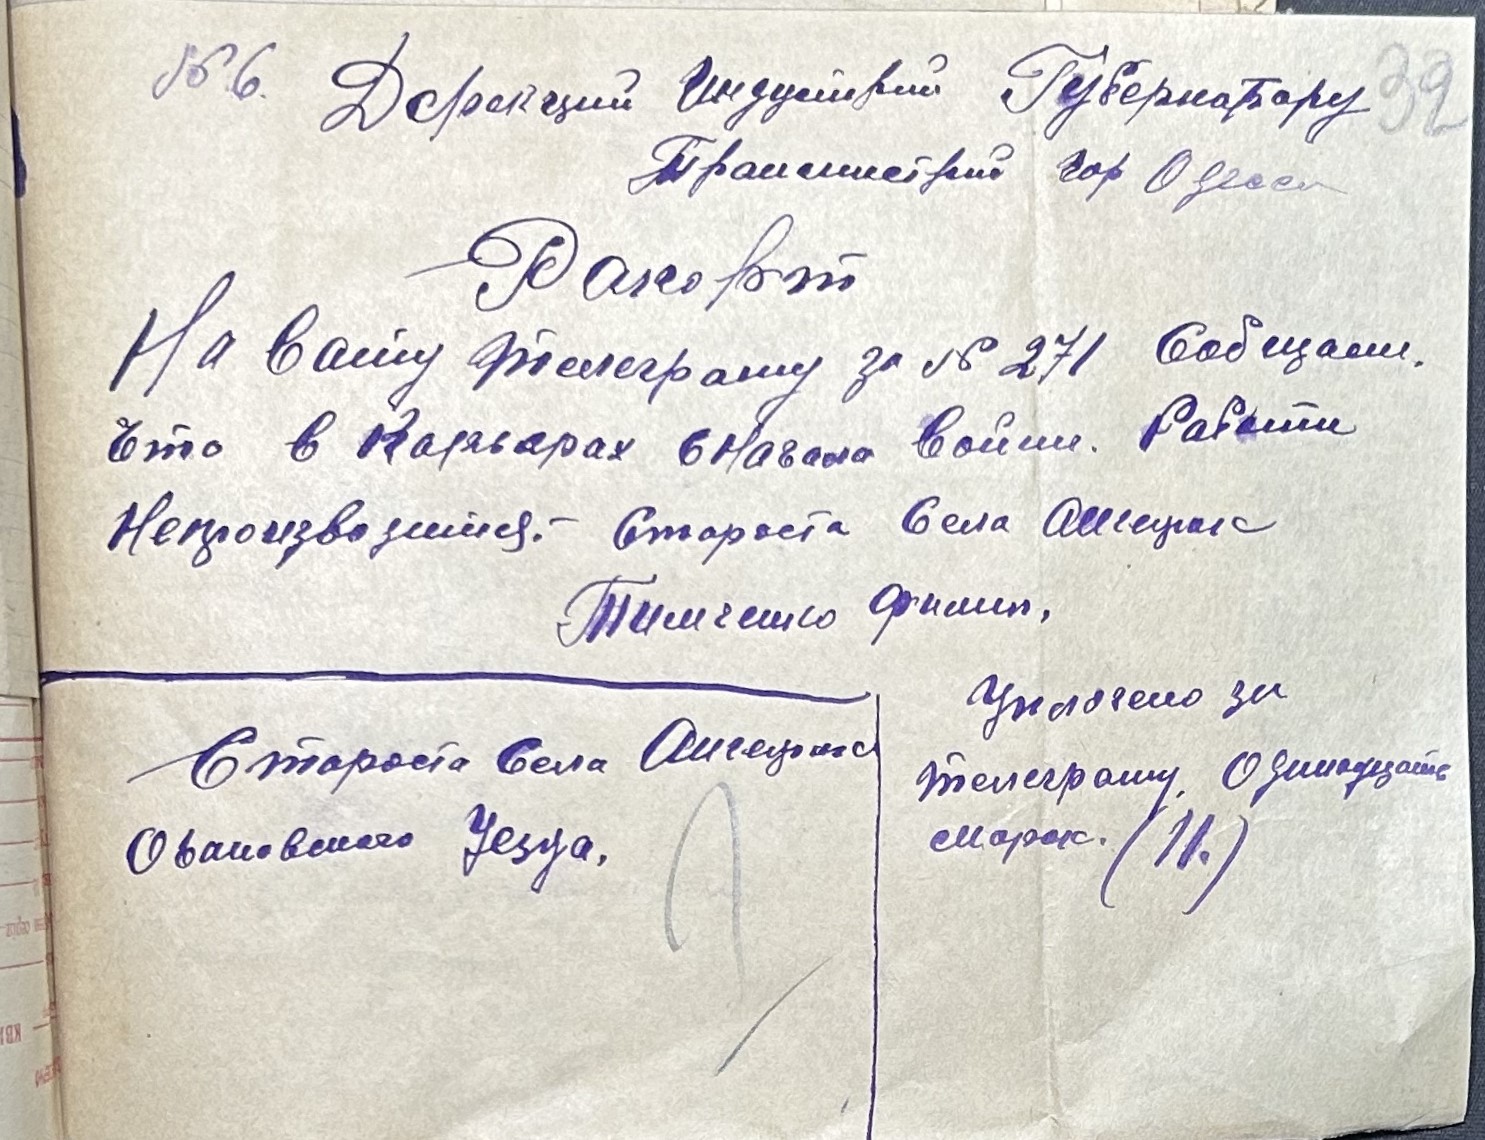 № 6. Дерекций Индустрий Губернатору 32
Транснистрий гор Одесса
Рапорт
На вашу телеграму за № 271 Собщаем.
Что в Карьерах сначала Войни. Работи
Непроизводились.- Староста Села
Тимченко Филип,
Староста Села
Овановского Уезда,
Уплочено за
телеграму, Одинадцать
марок. (11.)